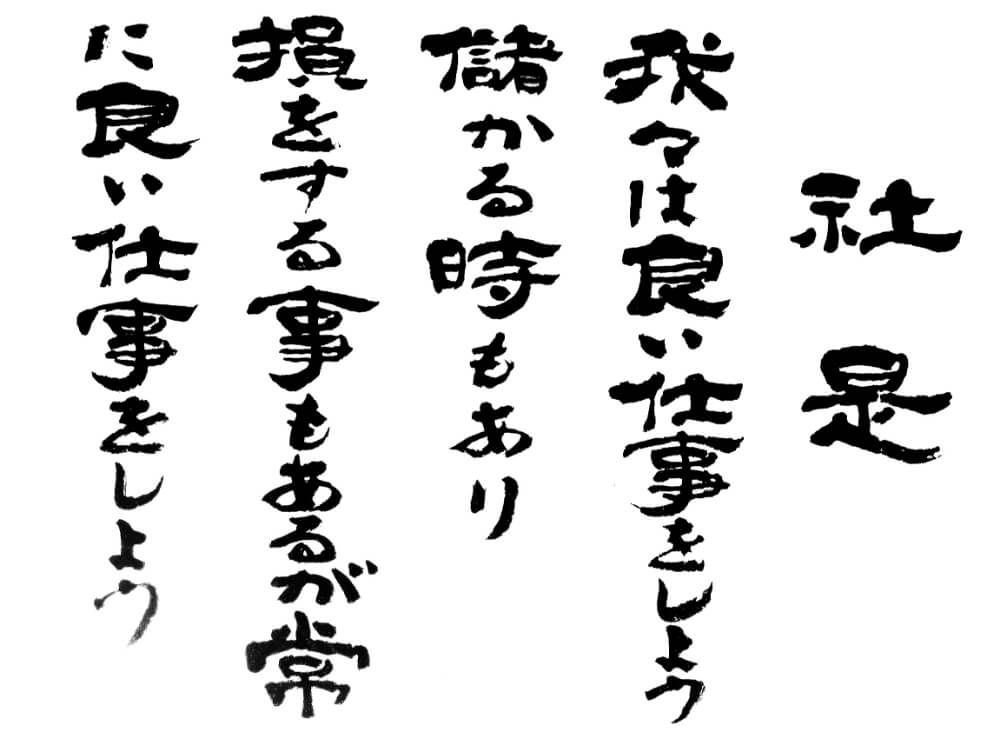 社是
我々は良い仕事をしよう
儲かる時もあり
損をする事もあるが常
に良い仕事をしよう